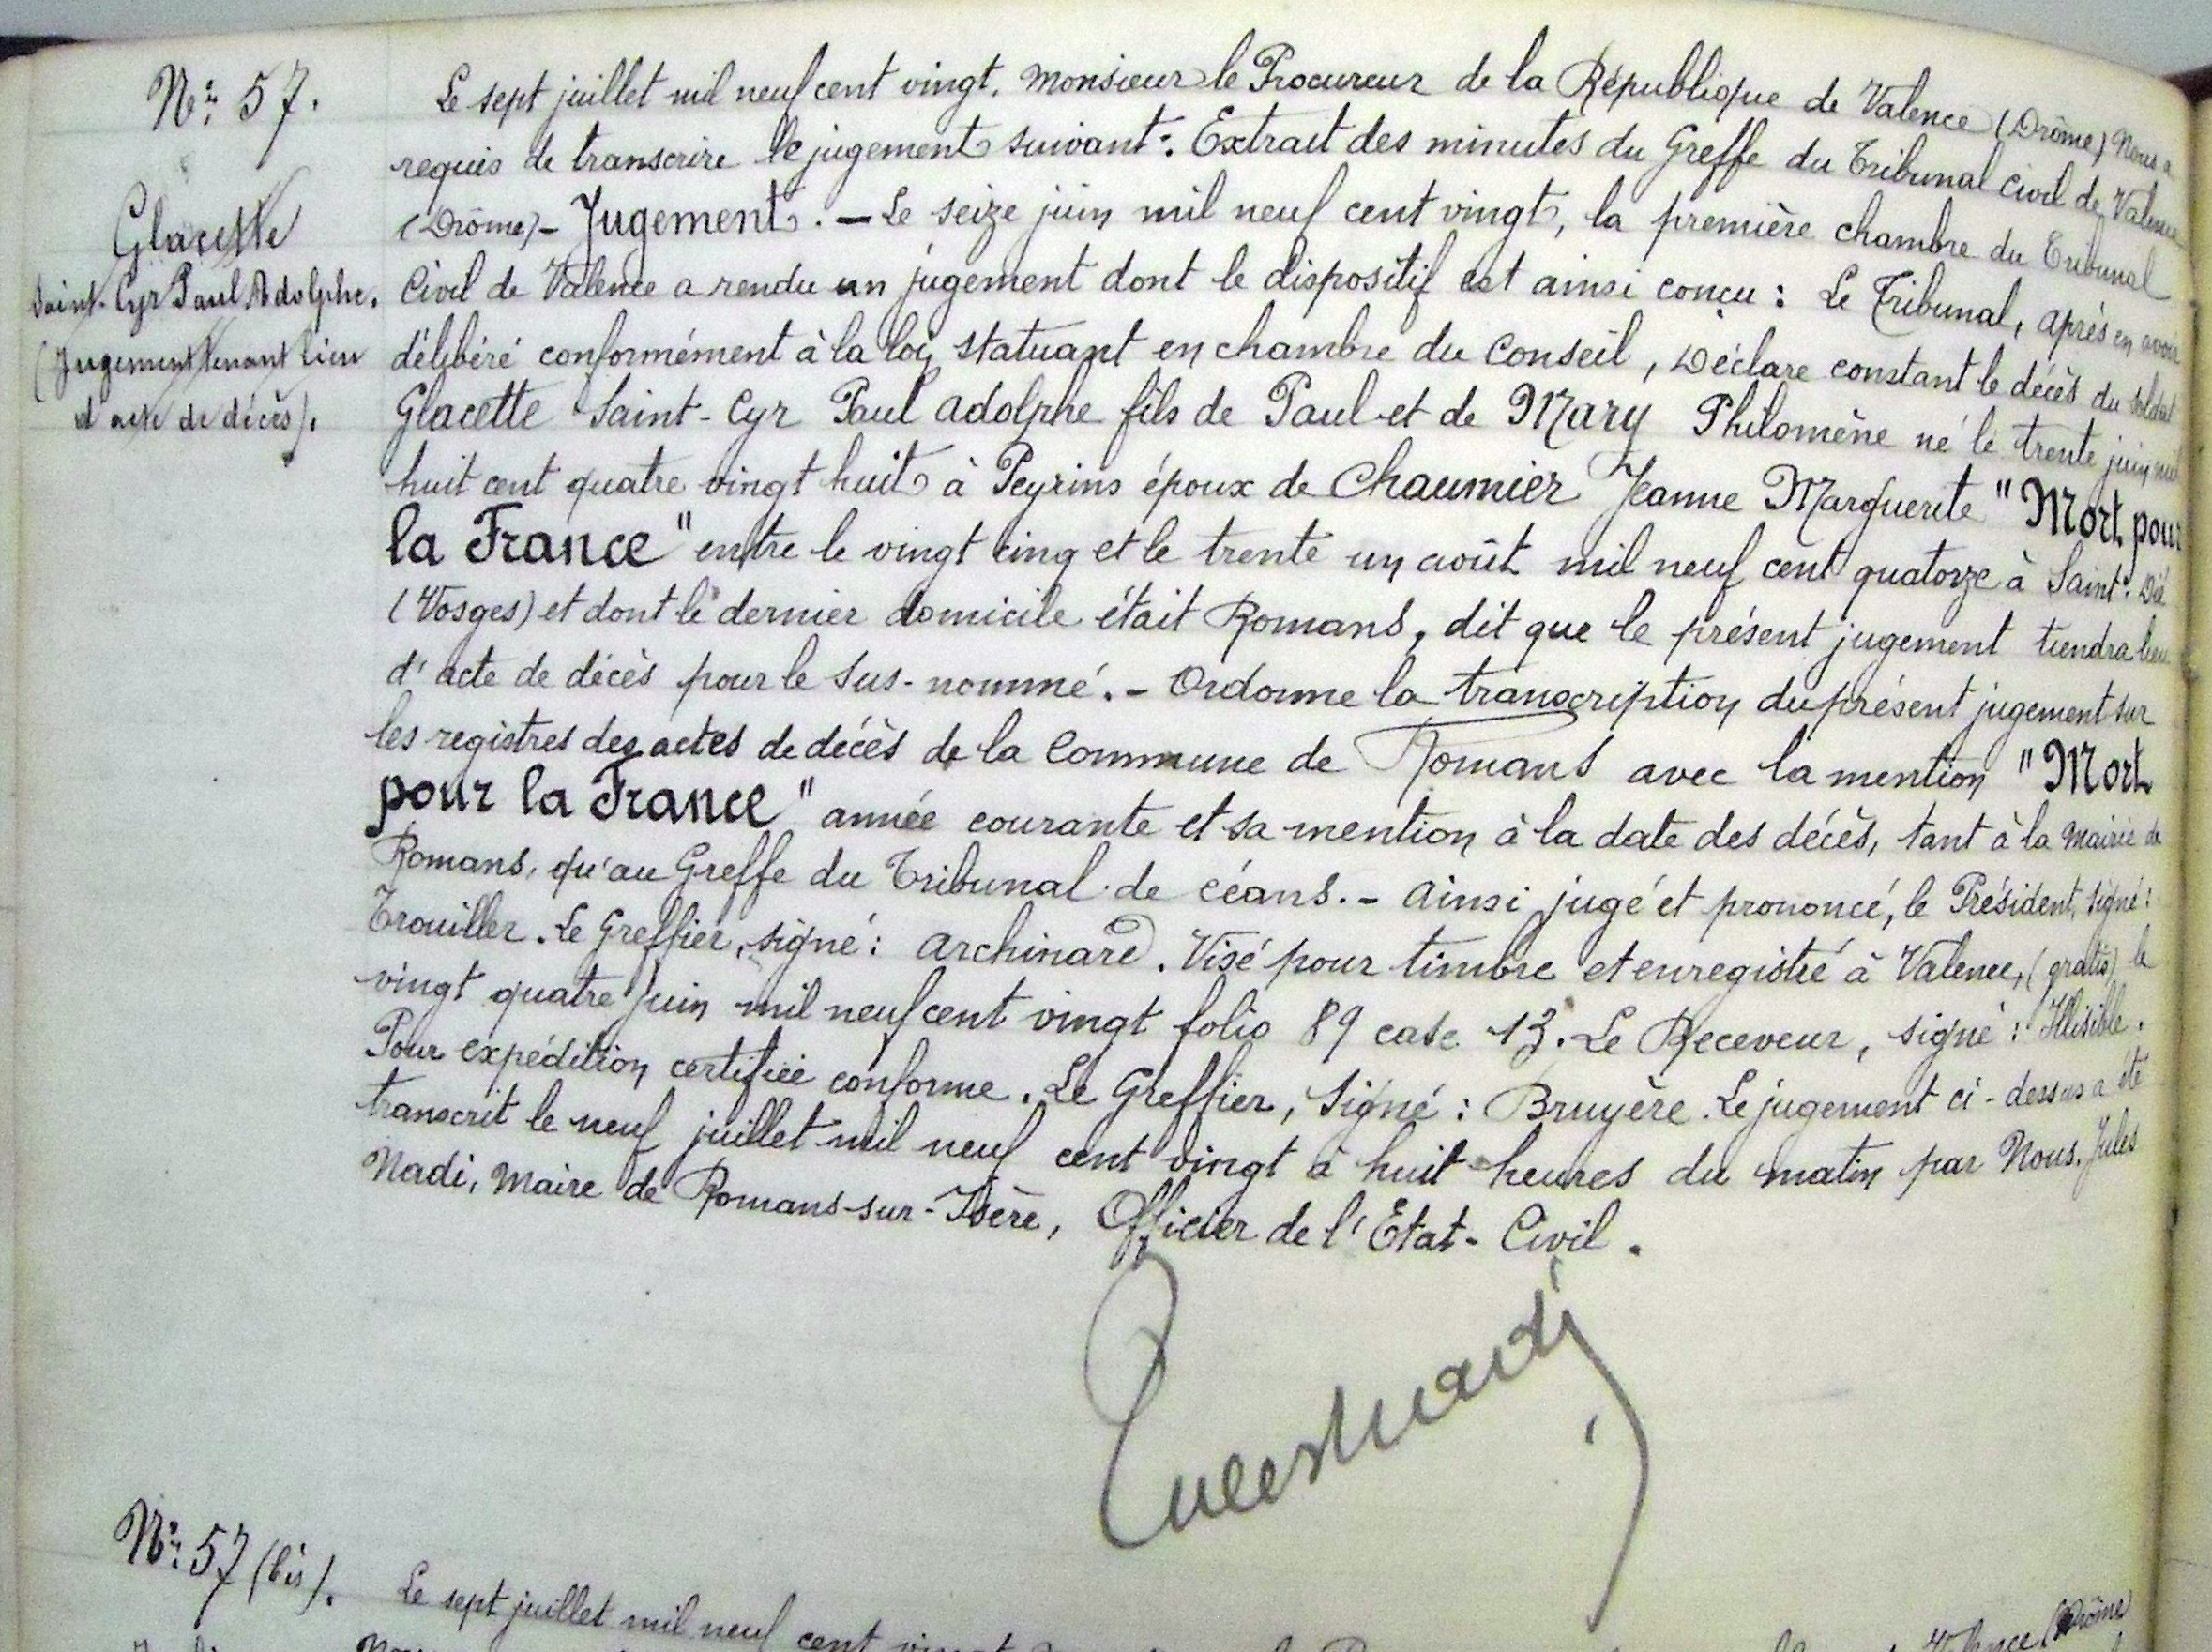 N°: 57.
Glacette
Saint-Cyr Paul Adolphe.
(Jugement tenant lieu
d'acte de décès).
Le sept juillet mil neuf cent vingt. Monsieur le Procureur de la République de Valence (Drôme) Nous a
requis de transcrire le jugement suivant: Extrait des minutes du Greffe du Tribunal Civil de Valence
(Drôme)- Jugement. — Le seize juin mil neuf cent vingt, la première chambre du Tribunal
Civil de Valence a rendu un jugement dont le dispositif est ainsi conçu : Le Tribunal, après en avoir
délibéré conformément à la loi, statuant en chambre du Conseil, Déclare constant le décès du soldat
Glacette Saint-Cyr Paul Adolphe fils de Paul et de Mary Philomène né le trente juin mil
huit cent quatre vingt huit à Peyrins époux de Chaumier Jeanne Marguerite "Mort pour
la France" entre le vingt cinq et le trente un août mil neuf cent quatorze à Saint-Dié
(Vosges) et dont le dernier domicile était Romans, dit que le présent jugement tiendra lieu
d'acte de décès pour le sus-nommé. - Ordonne la transcription du présent jugement sur
les registres des actes de décès de la Commune de Romans avec la mention "Mort
pour la France" année courante et sa mention à la date des décès, tant à la Mairie de
Romans, qu'au Greffe du Tribunal de céans. - Ainsi jugé et prononcé, le Président, signé:
Trouiller. Le Greffier, signé : Archinard. Visé pour timbre et enregistré à Valence, (gratis) le
vingt quatre Juin mil neuf cent vingt folio 89 case 13. Le Receveur, signé : Illisible.
Pour expédition certifiée conforme. Le Greffier, Signé : Bruyère. Le jugement ci-dessus a été
transcrit le neuf juillet mil neuf cent vingt à huit heures du matin par Nous. Jules
Nadi, Maire de Romans-sur-Isère, Officier de l'Etat-Civil.
Jules Nadi
N°: 57 (bis).
Le sept juillet mil neuf cent vingt Valence (Drôme)